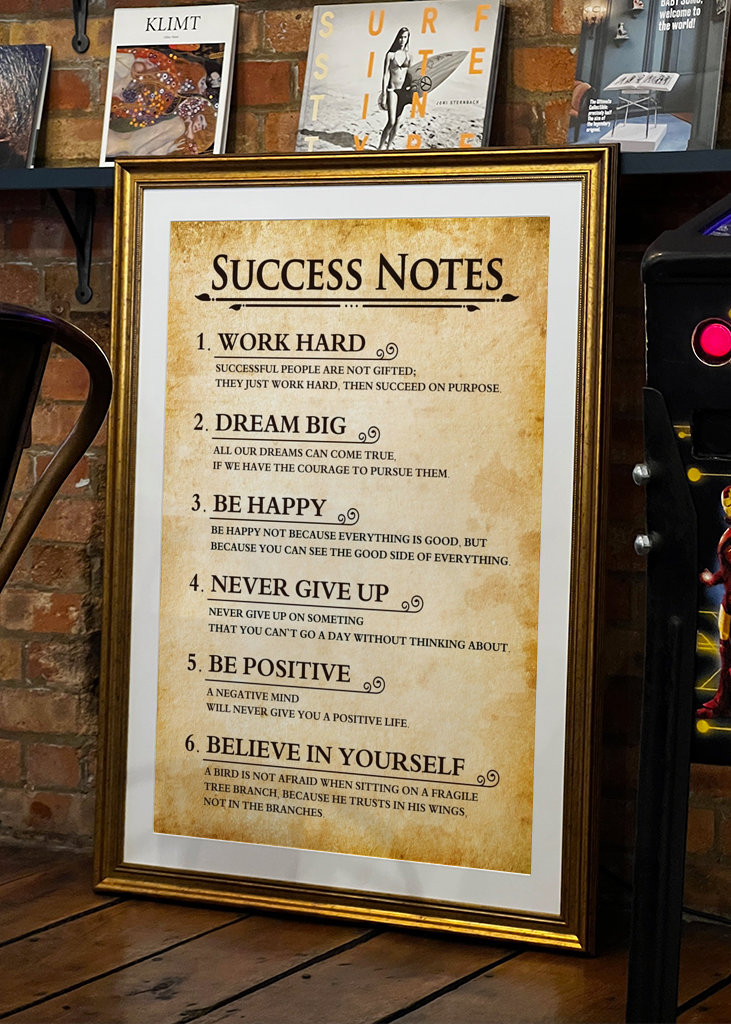 KLIMT
SURF
SITE
TIN
TYPE
JONI STERNBACH
welcome to
the world!
The Ultimate
Collectible:
precisely half
the size of
the legendary
original.
SUCCESS NOTES
1. WORK HARD
SUCCESSFUL PEOPLE ARE NOT GIFTED;
THEY JUST WORK HARD, THEN SUCCEED ON PURPOSE.
2. DREAM BIG
ALL OUR DREAMS CAN COME TRUE,
IF WE HAVE THE COURAGE TO PURSUE THEM.
3. BE HAPPY
BE HAPPY NOT BECAUSE EVERYTHING IS GOOD, BUT
BECAUSE YOU CAN SEE THE GOOD SIDE OF EVERYTHING.
4. NEVER GIVE UP
NEVER GIVE UP ON SOMETING
THAT YOU CAN'T GO A DAY WITHOUT THINKING ABOUT.
5. BE POSITIVE
A NEGATIVE MIND
WILL NEVER GIVE YOU A POSITIVE LIFE.
6. BELIEVE IN YOURSELF
A BIRD IS NOT AFRAID WHEN SITTING ON A FRAGILE
TREE BRANCH, BECAUSE HE TRUSTS IN HIS WINGS,
NOT IN THE BRANCHES.